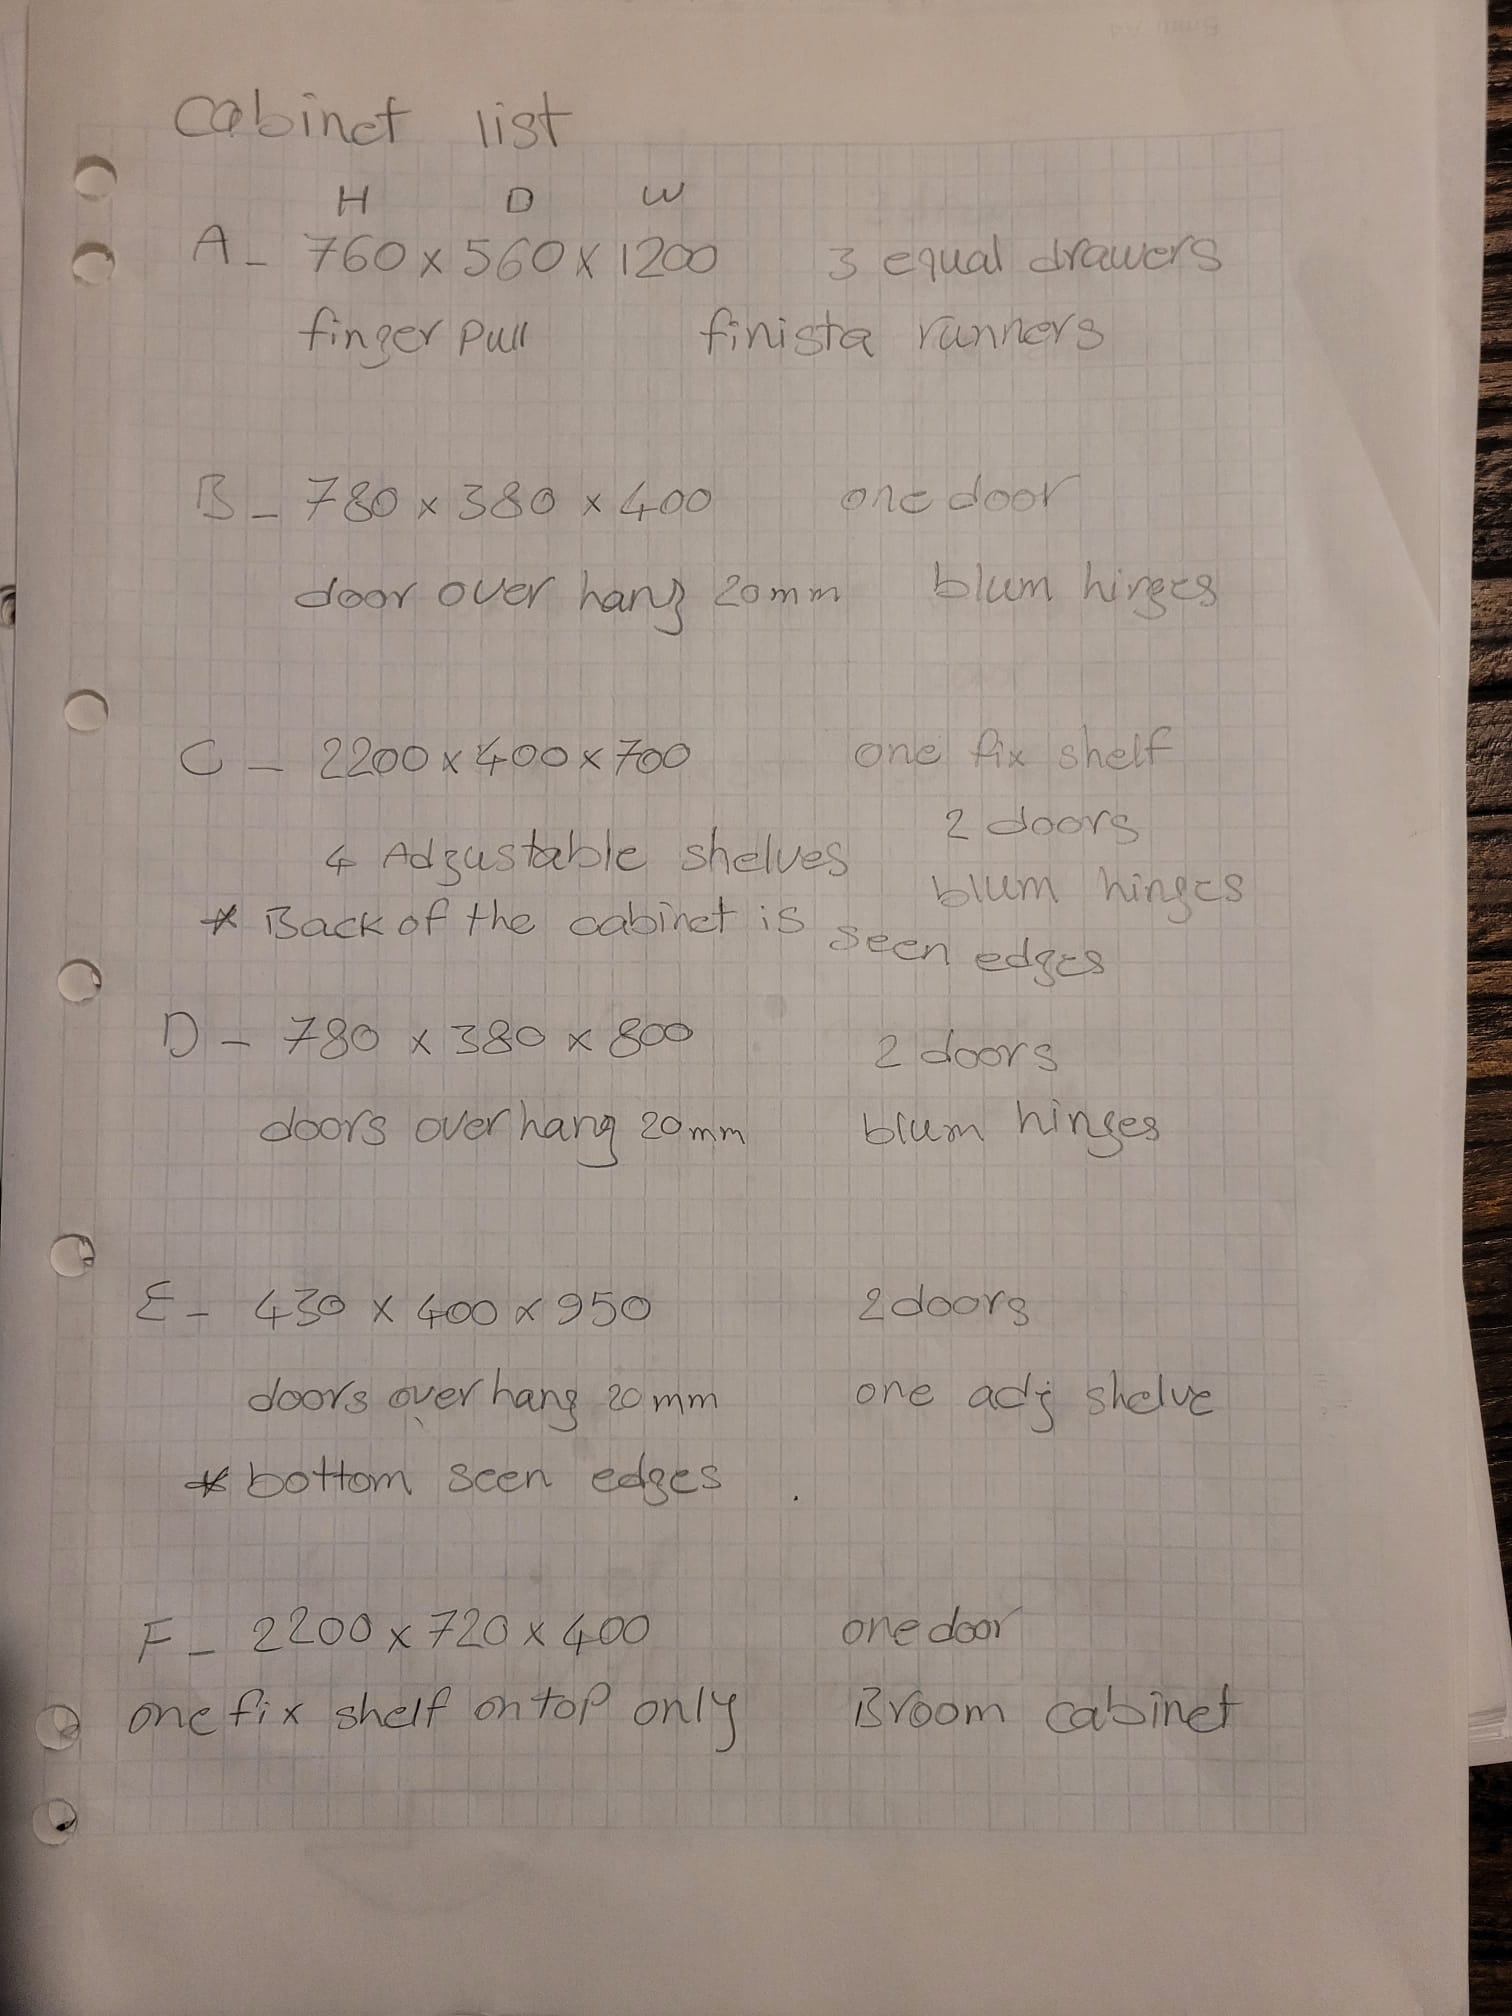 Cabinet list
H D W
A - 760 x 560 x 1200 3 equal drawers
finger pull finista runners
B - 780 x 380 x 400 one door
door over hang 20mm blum hinges
C - 2200 x 400 x 700 one fix shelf
2 doors
4 Adjustable shelves
blum hinges
* Back of the cabinet is seen edges
D - 780 x 380 x 800 2 doors
doors over hang 20mm blum hinges
E - 430 x 400 x 950 2 doors
doors over hang 20mm one adj shelve
* bottom seen edges
F - 2200 x 720 x 400 one door
one fix shelf on top only Broom cabinet